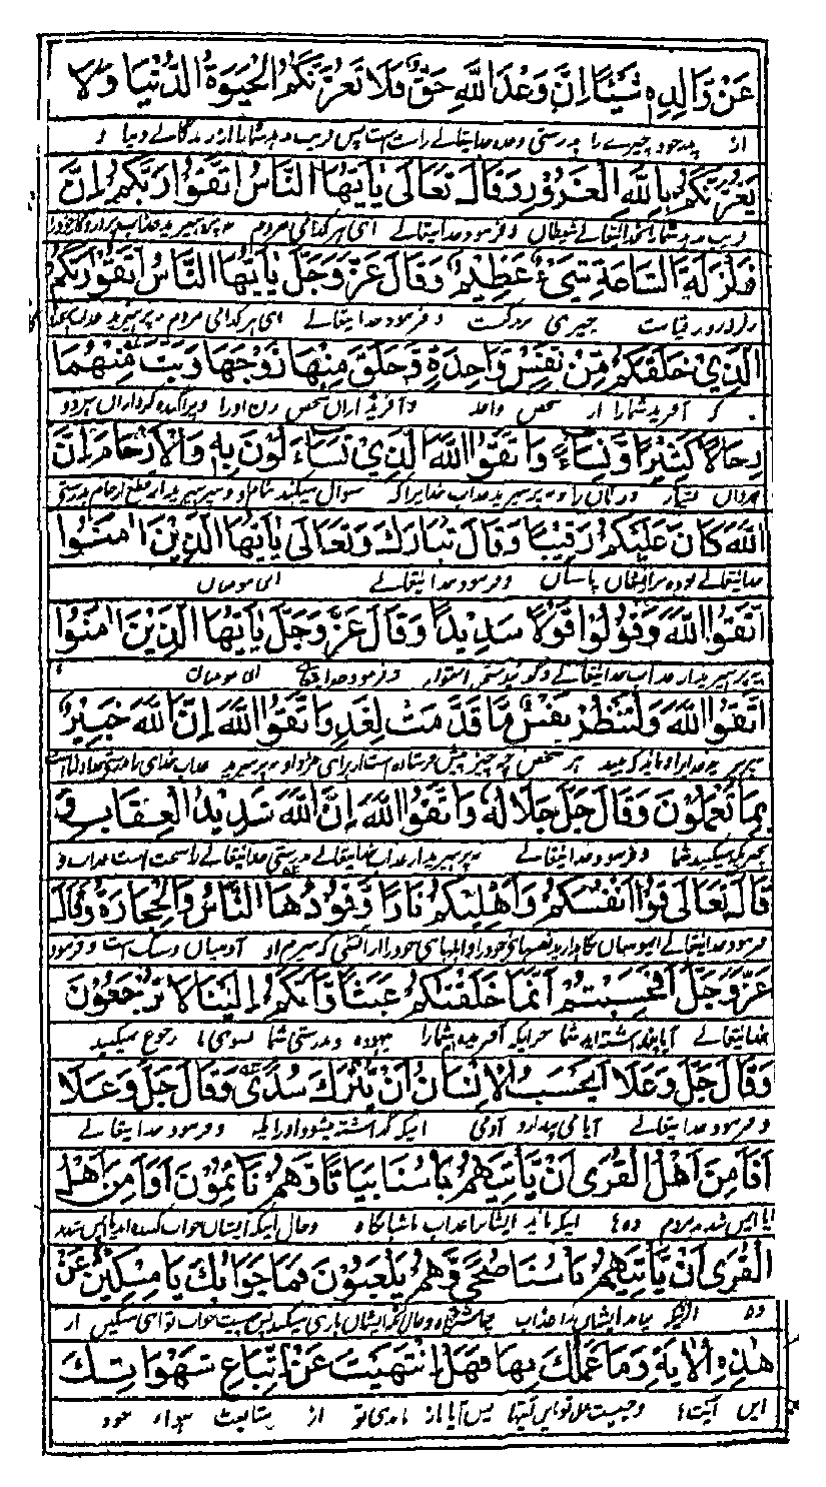 عَنْ وَّالِدِهٖ شَيْئًا اِنَّ وَعْدَ اللّٰهِ حَقٌّ فَلَا تَغُرَّنَّكُمُ الْحَيٰوةُ الدُّنْيَا وَلَا
از پدر خود چیزے را بدرستی وعده خدایتعالے راست است پس فریب ندهد شمارا زندگانے دنیا و
يَغُرَّنَّكُمْ بِاللّٰهِ الْغَرُوْرِ وَقَالَ تَعَالٰى يٰاَيُّهَا النَّاسُ اتَّقُوْا رَبَّكُمْ اِنَّ
فریب ندهد شمارا بخدایتعالے شیطان و فرمود خدایتعالے ای هر کدامی مردم
زَلْزَلَةَ السَّاعَةِ شَيْءٌ عَظِيْمٌ وَقَالَ عَزَّ وَجَلَّ يٰاَيُّهَا النَّاسُ اتَّقُوْا رَبَّكُمُ
قیامت چیزی بزرگست و فرمود خدایتعالے ای هر کدامی مردم بپرهیزید عذاب
الَّذِيْ خَلَقَكُمْ مِّنْ نَّفْسٍ وَّاحِدَةٍ وَّخَلَقَ مِنْهَا زَوْجَهَا وَبَثَّ مِنْهُمَا
که آفرید شمارا از شخص واحد و آفرید ازان شخص زن اورا و پراگنده کرد ازان هردو
رِجَالًا كَثِيْرًا وَّنِسَاءً وَاتَّقُوا اللّٰهَ الَّذِيْ تَسَاءَلُوْنَ بِهٖ وَالْاَرْحَامَ اِنَّ
مردان بسیار و زنان را و بپرهیزید عذاب خدایرا که سوال میکنید بنام او و بپرهیزید از قطع ارحام بدرستی
اللّٰهَ كَانَ عَلَيْكُمْ رَقِيْبًا وَقَالَ تَبَارَكَ وَتَعَالٰى يٰاَيُّهَا الَّذِيْنَ اٰمَنُوا
خدایتعالے بوده پاسبان و فرمود خدایتعالے ای مومنان
اتَّقُوا اللّٰهَ وَقُوْلُوْا قَوْلًا سَدِيْدًا وَقَالَ عَزَّ وَجَلَّ يٰاَيُّهَا الَّذِيْنَ اٰمَنُوا
بپرهیزید از عذاب خدایتعالے و گوئید سخن استوار و فرمود خدایتعالے ای مومنان
اتَّقُوا اللّٰهَ وَلْتَنْظُرْ نَفْسٌ مَّا قَدَّمَتْ لِغَدٍ وَاتَّقُوا اللّٰهَ اِنَّ اللّٰهَ خَبِيْرٌ
هر شخص چه چیز پیش فرستاده است از برای فردا و بپرهیزید عذاب خدای را
بِمَا تَعْمَلُوْنَ وَقَالَ جَلَّ جَلَالُهٗ وَاتَّقُوا اللّٰهَ اِنَّ اللّٰهَ شَدِيْدُ الْعِقَابِ وَ
میکنید شما و فرمود خدایتعالے بپرهیزید از عذاب خدایتعالے بدرستی خدایتعالے را سخت است عذاب و
قَالَ تَعَالٰى قُوْا اَنْفُسَكُمْ وَاَهْلِيْكُمْ نَارًا وَّقُوْدُهَا النَّاسُ وَالْحِجَارَةُ وَقَالَ
فرمود خدایتعالے آدمیان و سنگ است و فرمود
عَزَّ وَجَلَّ اَفَحَسِبْتُمْ اَنَّمَا خَلَقْنٰكُمْ عَبَثًا وَّاَنَّكُمْ اِلَيْنَا لَا تُرْجَعُوْنَ
خدایتعالے آیا پنداشته اید شما بیهوده و بدرستی شما بسوی ما رجوع میکنید
وَقَالَ جَلَّ وَعَلَا اَيَحْسَبُ الْاِنْسَانُ اَنْ يُّتْرَكَ سُدًى وَقَالَ جَلَّ وَعَلَا
و فرمود خدایتعالے آیا می پندارد آدمی اینکه گذاشته میشود و فرمود خدایتعالے
اَفَاَمِنَ اَهْلُ الْقُرٰى اَنْ يَّاْتِيَهُمْ بَاْسُنَا بَيَاتًا وَّهُمْ نَائِمُوْنَ اَوَاَمِنَ اَهْلُ
آیا ایمن شدند مردم ده ها اینکه بیاید ایشانرا عذاب ما شبانگاه و حال اینکه ایشان خواب کننده اند آیا ایمن شدند
الْقُرٰى اَنْ يَّاْتِيَهُمْ بَاْسُنَا ضُحًى وَّهُمْ يَلْعَبُوْنَ فَمَا جَوَابُكَ يَا مِسْكِيْنُ عَنْ
ده اینکه بیاید ایشان را عذاب و حال آنکه ایشان بازی میکنند پس چیست جواب تو ای مسکین از
هٰذِهِ الْاٰيَةِ وَمَا عَمَلُكَ بِهَا فَهَلِ انْتَهَيْتَ عَنْ اِتِّبَاعِ شَهْوَاتِكَ
این آیتها و چیست عمل تو پس آیا از متابعت خود